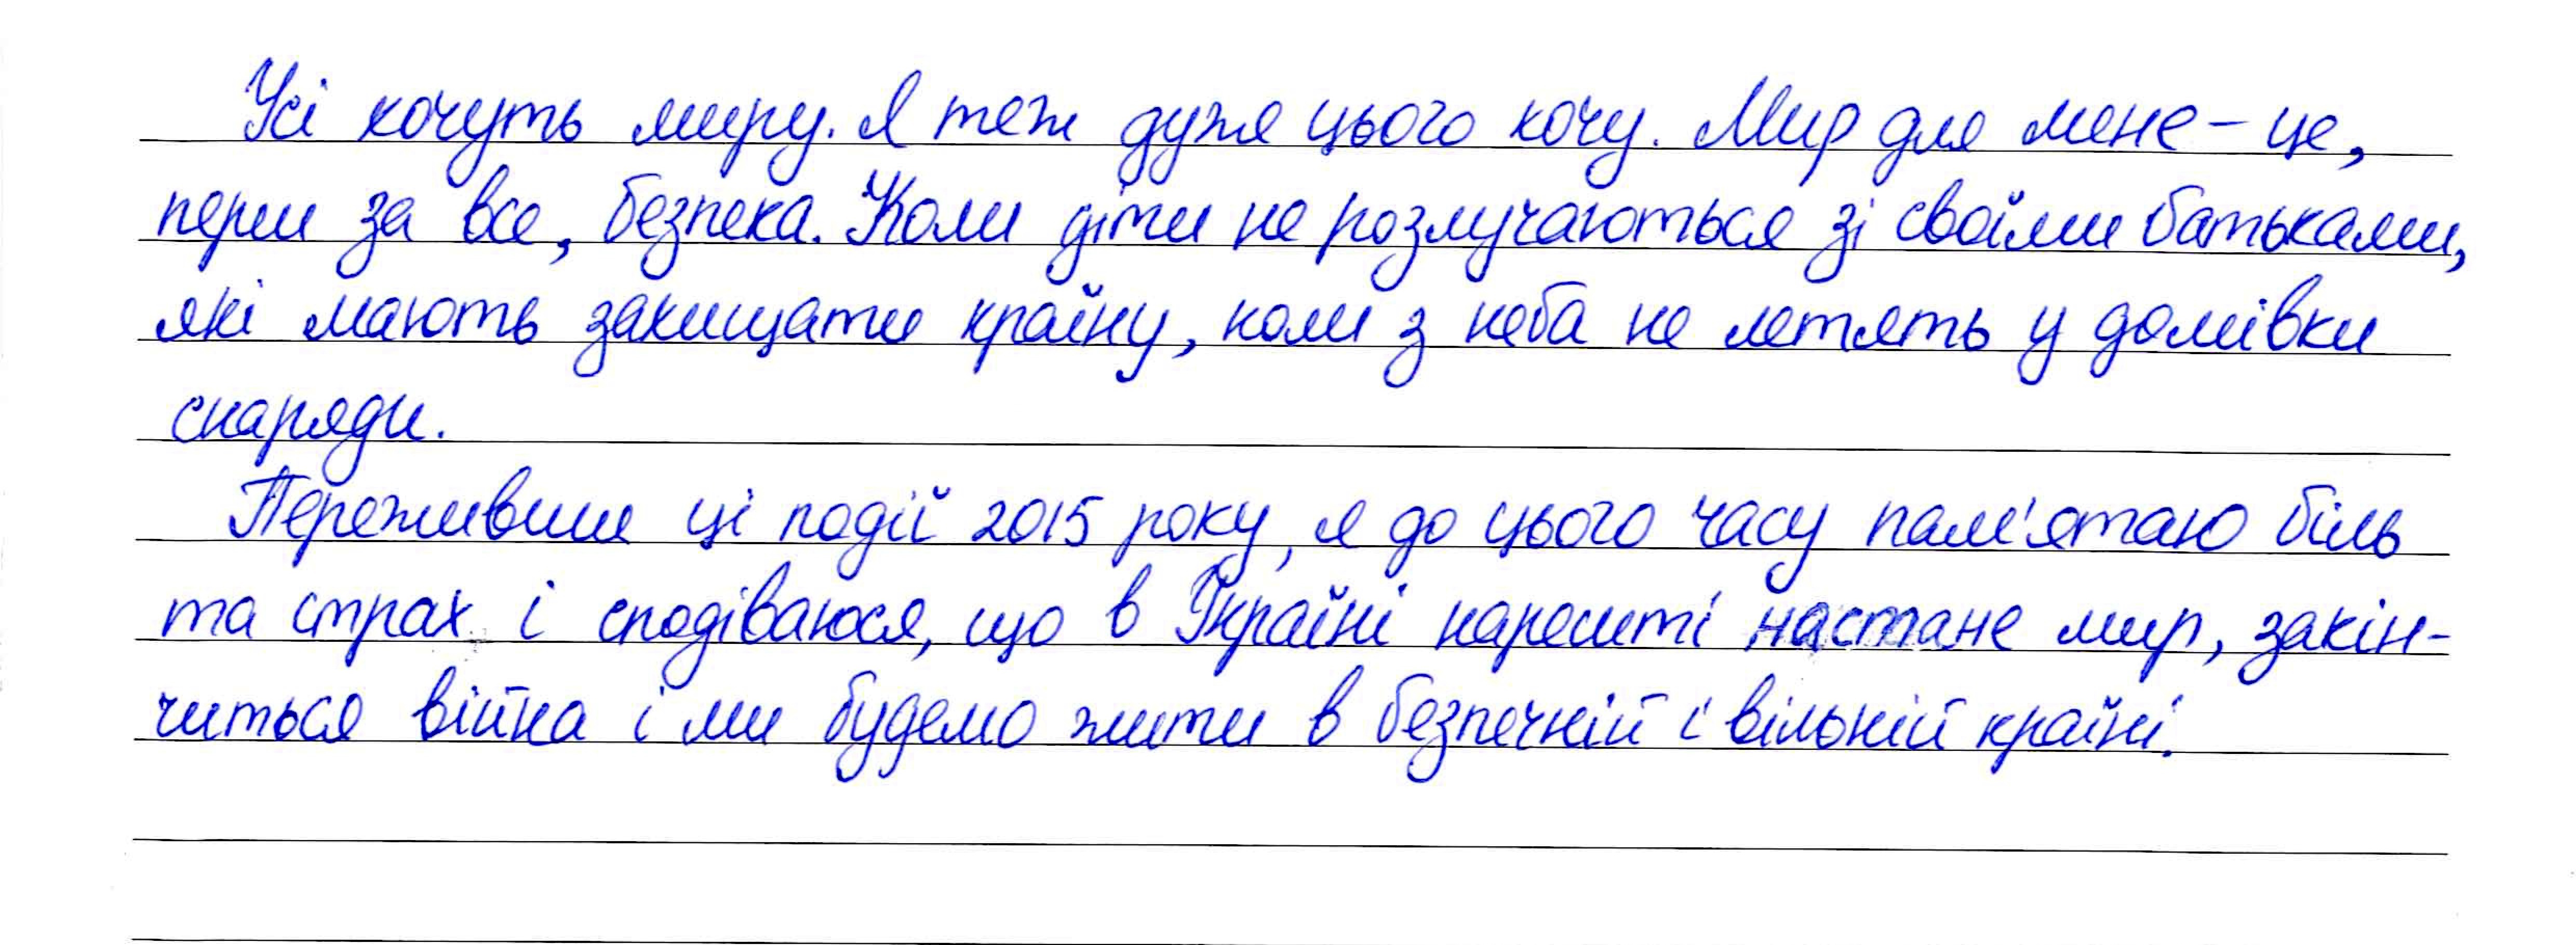 Усі хочуть миру. Я теж дуже цього хочу. Мир для мене – це,
перш за все, безпека. Коли діти не розлучаються зі своїми батьками,
які мають захищати країну, коли з неба не летять у домівки
снаряди.
Переживши ці події 2015 року, я до цього часу пам'ятаю біль
та страх і сподіваюся, що в Україні нарешті настане мир, закін-
читься війна і ми будемо жити в безпечній і вільній країні.